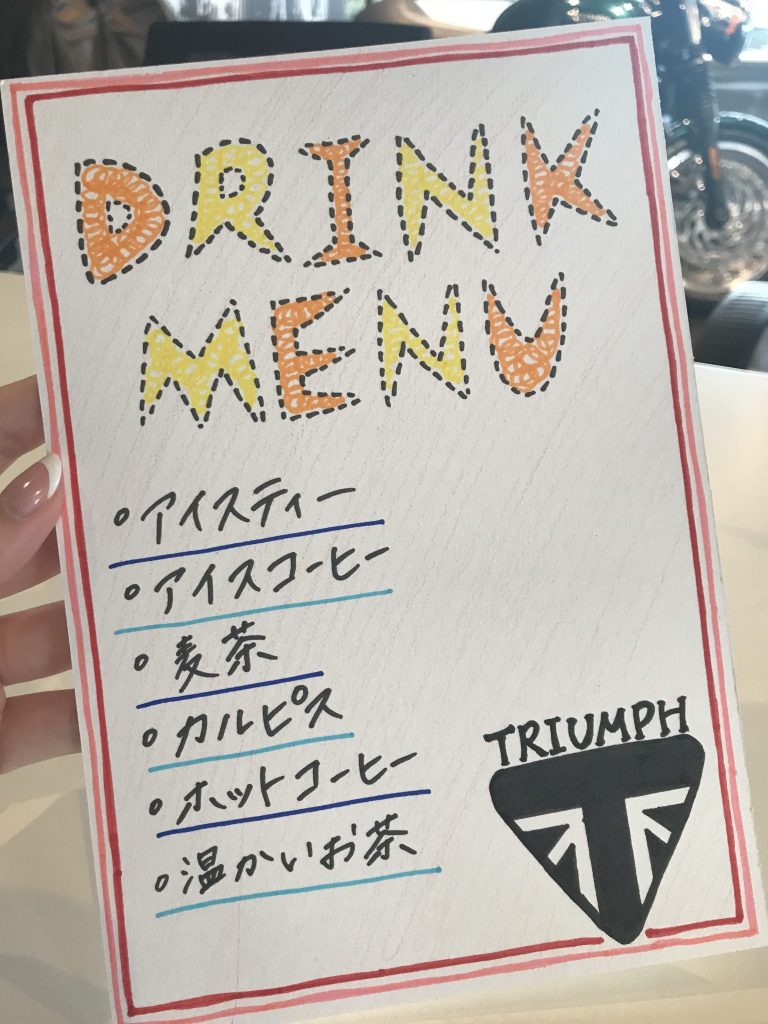 DRINK
MENU
。アイスティー
。アイスコーヒー
。麦茶
。カルピス
。ホットコーヒー
。温かいお茶
TRIUMPH